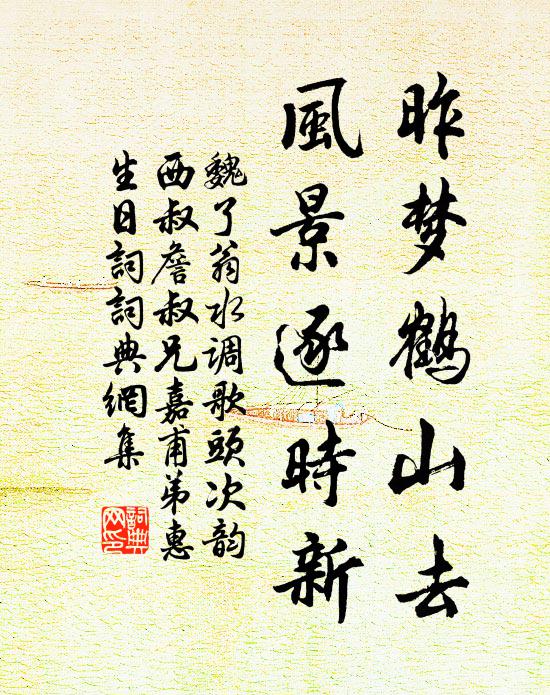 昨梦鹤山去
風景逐時新
魏了翁水调歌頭次韵
西叔詹叔兄嘉甫弟惠
生日詞詞典網集
詞典网印